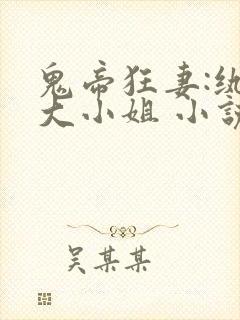 鬼帝狂妻:纨
大小姐 小説
吴某某